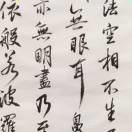 法空相不生
無眼耳鼻
亦無明盡乃至
依般若波羅